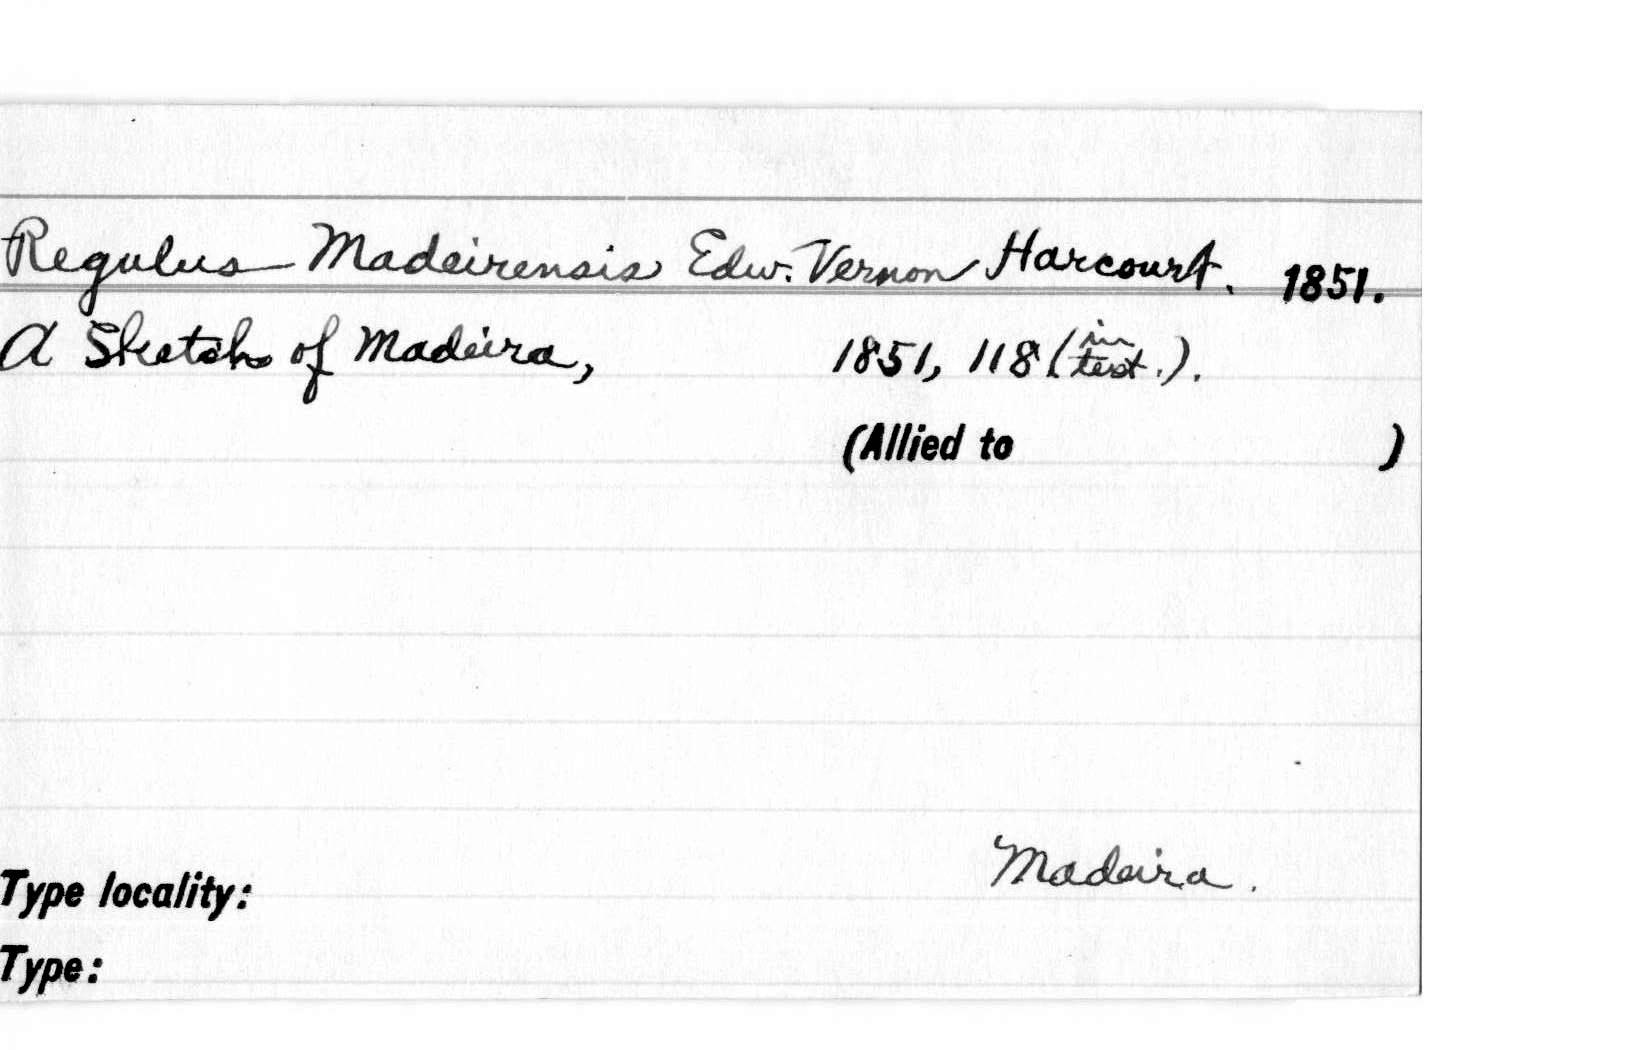 Regulus Madeirensis Edw. Vernon Harcourt. 1851.
A Sketch of Madeira, 1851, 118 (in text.).
(Allied to )
Madeira.
Type locality:
Type: